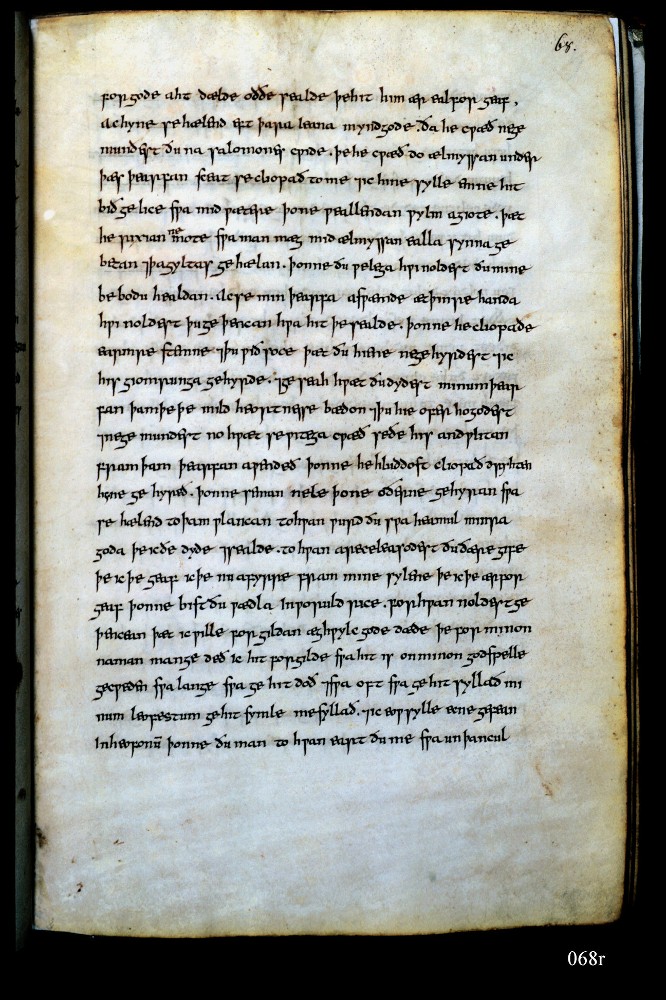 68.
for gode aht dælde oððe sealde þe hit him ær eal for geaf,
Ac hyne se hælend eft þara leana myndgode. ða he cpæð ne ge
mundest ðu na salomones cpide. þe he cpæð do ælmyssan under
þæs þearfan sceat se cliopað to me ⁊ ic hine sylle
bið ge lice spa mid pætere þone peallendan pylm aþote. þæt
he ne mote spa man mæg mid ælmyssan ealla synna ge
betan ⁊ þa gyltas ge hælan. þonne ðu pelega hpi noldest ðu mine
be bodu healdan. Ac se min þearfa æt þinre handa
hpi noldest þu ge þencan hpa hit þe sealde. þonne he cliopade
earmre stefne ⁊ þu pið soce þæt ðu hiene ne ge hyrdest ⁊ ic
his giomrunga gehyrde. ⁊ ge seah hpæt ðu dydest minum þear
fan þam þe þe mild heortnesse bædon ⁊ þu hie ofer hogodest
⁊ ne ge mundest no hpæt se pitega cpæð seðe his andplitan
fram þam þearfan apendeð þonne he hluddost cliopað
hyne ge hyreð. þonne nele þone oðerne gehyran spa
se hælend to þam plancan to hpan purd ðu spa heamul minra
goda þe ic ðe dyde ⁊ sealde. to hpan areceleasodest ðu ðære gife
þe ic þe geaf ic þe nu afyrre fram mine sylene þe ic þe ær for
geaf þonne bist ðu pædla In poruld rice. for hpan noldest ge
þencean þæt ic pille for gildan æghpylc gode dæde þe for minon
naman mange deð ic hit forgilde spa hit is on minon godspelle
gecpeden spa lange spa ge hit doð ⁊ spa oft spa ge hit syllað mi
num leofestum ge hit symle me syllað. ⁊ ic eop sylle ecne gefean
In heofonū þonne ðu man to hpan eart ðu me spa un þancul
068r